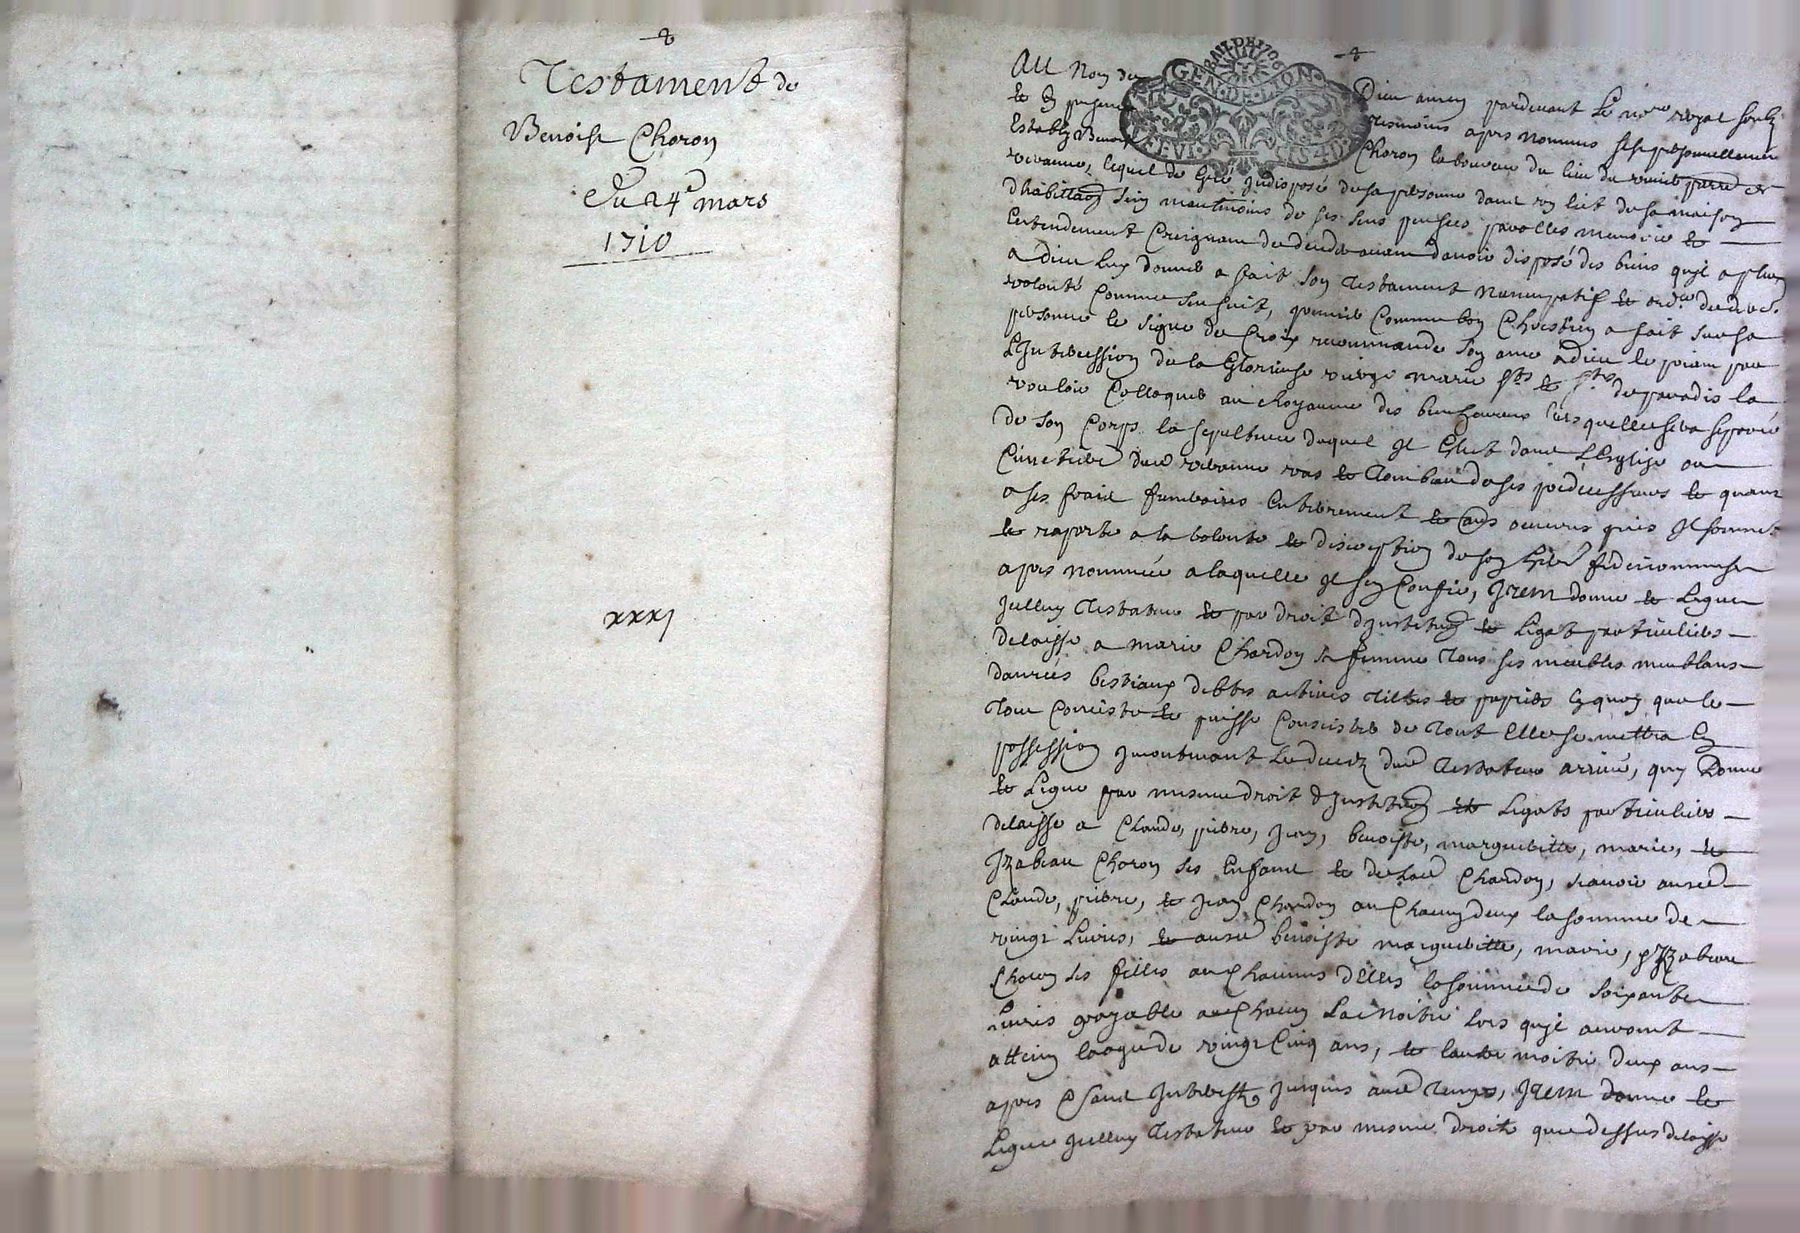 Testament de
Benoist Choron
Du 24e mars
1710
xxxj
GEN·DE·LYON
Au Nom de Dieu amen pardevant le nore royal soubzs
et en presence tesmoins apres nommes sest personnellement
Estably Benoist Choron laboureur du lieu du
vivanne, lequel de gré indisposé de sa personne dans son lict de sa maison
dhabitaon sain neantmoins de ses sens pensees parolles memoire et
Entendement Creignant de deceder avant davoir disposé des biens quil a pleu
a dieu luy donner a fait son testament nuncupatif et ordre de derre
volonté Comme sensuit, premier Comme bon Chrestien a fait sur sa
personne le signe de Croix recommande son ame a dieu le priant par
LIntercession de la Glorieuse vierge marie sts et stes de paradis la
vouloir Colloquer au Royaume des bienheureux lors quelle sera separée
de son Corps la sepulture duquel il Eslit dans LEglise ou
Cimetiere dud vivanne vas et Tombeau de ses predecesseurs et quant
a ses frais funeraires Enterrement et oeuvres pies il sommet
et raporte a la volonté et discreption de son herre fideicommise
apres nommée a laquelle il sen Confie, Item donne et Legue
Icelluy Testateur et par droit dinstituon et Legat particulier
delaisse a marie Chardon sa femme tous ses meubles meublans
danrées bestiaux debtes actives tiltres et papiers En quoy que le
tout Consiste et puisse Consister de tout Elle se mettra En
possession incontinant le deceds dud Testateur arrivé, qui Donne
et Legue par mesme droit dinstituon et Legats particulier
delaisse a Claude, pierre, jean, benoiste, margueritte, marie, et
Izabeau Choron ses Enfans et de lad Chardon, scavoir ausd
Claude, pierre, et jean Chardon a un Chacun deux la somme de
vingt Livres, et ausd benoiste margueritte, marie, et Izabeau
Choron ses filles a une Chacune dElles la somme de soixante
livres payable a un Chacun La moitié lors quil auront
attein laage de vingt Cinq ans, et lautre moitié deux ans
apres Et sans Interestz jusques aud temps, Item donne et
Legue Icelluy Testateur et par mesme droit que dessus delaisse